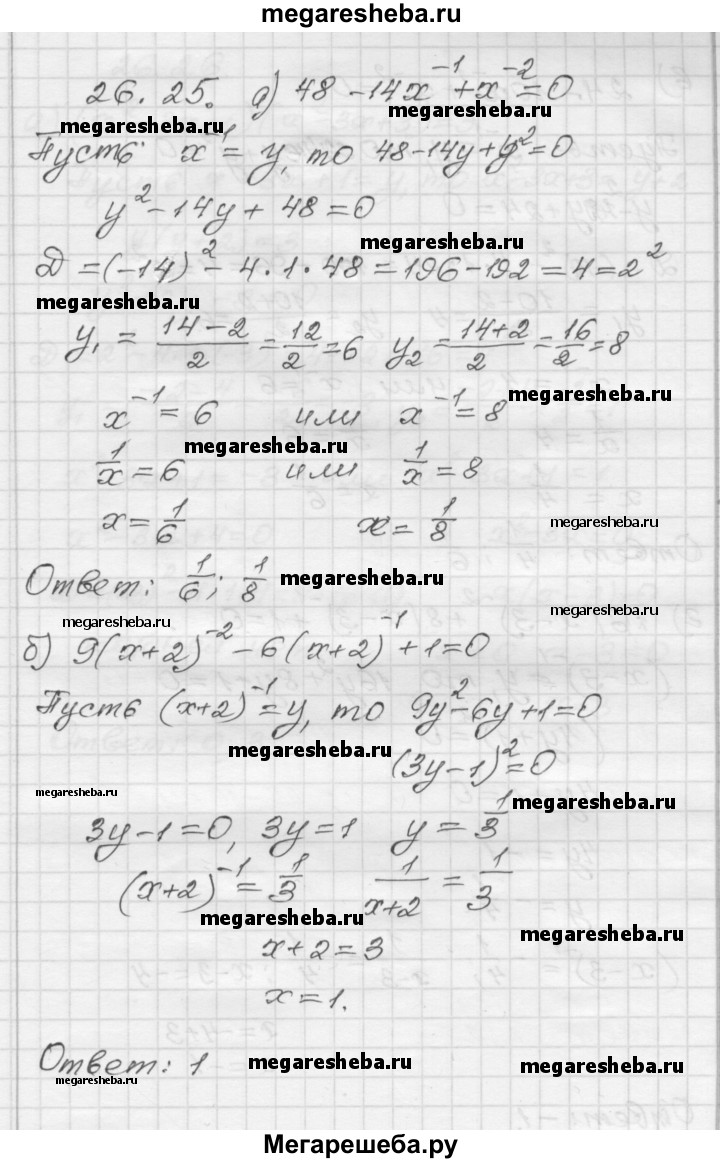 megaresheba.ru
26.25. а) 48 - 14x⁻¹ + x⁻² = 0
megaresheba.ru
megaresheba.ru
Пусть x⁻¹ = y, то 48 - 14y + y² = 0
y² - 14y + 48 = 0
megaresheba.ru
Д = (-14)² - 4·1·48 = 196 - 192 = 4 = 2²
megaresheba.ru
y₁ = (14-2)/2 = 12/2 = 6 y₂ = (14+2)/2 = 16/2 = 8
megaresheba.ru
x⁻¹ = 6 или x⁻¹ = 8
megaresheba.ru
1/x = 6 или 1/x = 8
x = 1/6 x = 1/8
megaresheba.ru
Ответ: 1/6; 1/8 megaresheba.ru
megaresheba.ru
megaresheba.ru
б) 9(x+2)⁻² - 6(x+2)⁻¹ + 1 = 0
Пусть (x+2)⁻¹ = y, то 9y² - 6y + 1 = 0
megaresheba.ru
(3y-1)² = 0
megaresheba.ru
megaresheba.ru
3y - 1 = 0, 3y = 1 y = 1/3
(x+2)⁻¹ = 1/3 1/(x+2) = 1/3
megaresheba.ru
megaresheba.ru
x + 2 = 3
x = 1.
Ответ: 1 megaresheba.ru
megaresheba.ru
megaresheba.ru
Мегарешеба.ру